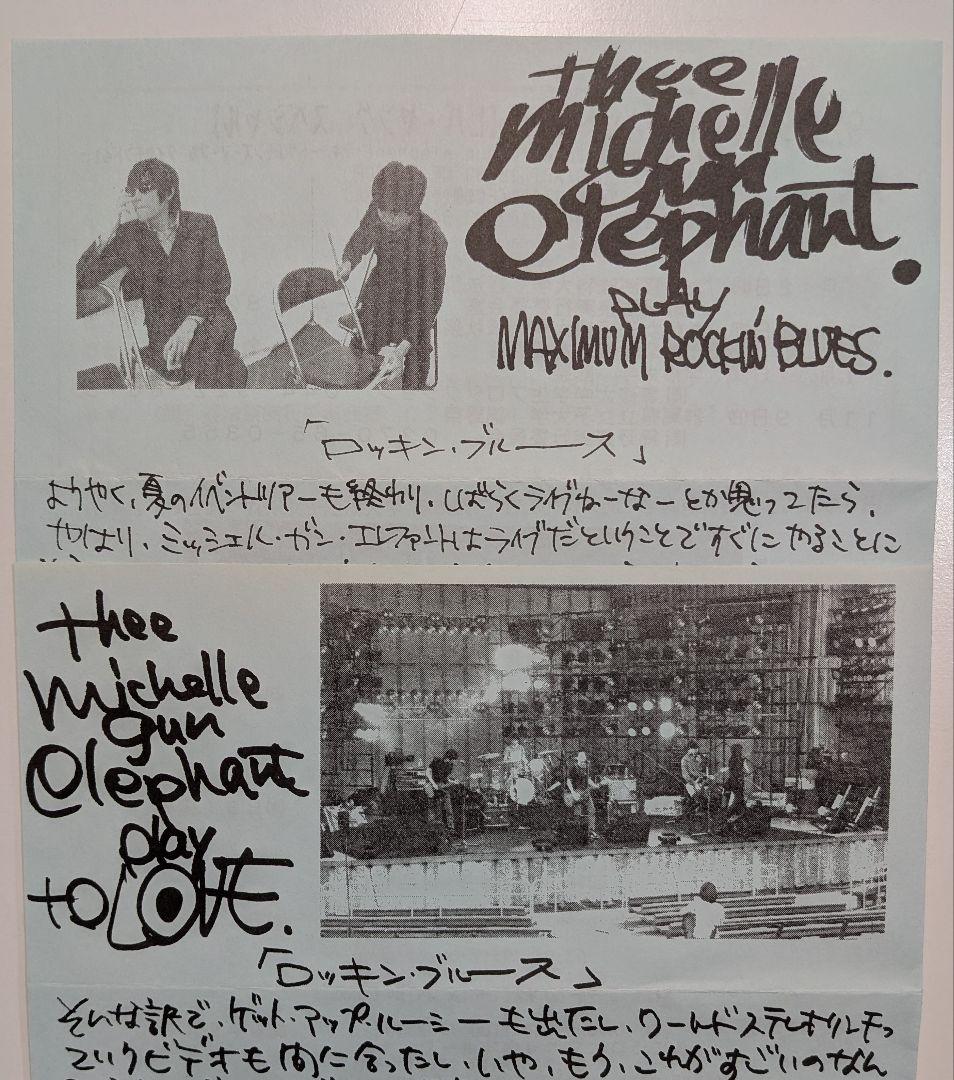 thee
michelle
gun
elephant.
PLAY
MAXIMUM ROCKIN' BLUES.
「ロッキン・ブルース」
ようやく、夏のイベントツアーも終わり、しばらくライブねーなーとか思ってたら、
やはり、ミッシェル・ガン・エレファントはライブだということですぐにやることに
thee
michelle
gun
elephant
play
to LOVE.
「ロッキン・ブルース」
そんな訳で、ゲット・アップ・ルーシーも出たし、ワールドステレオリンチっ
ていうビデオも間に合ったし、いや、もう、これがすごいのなん